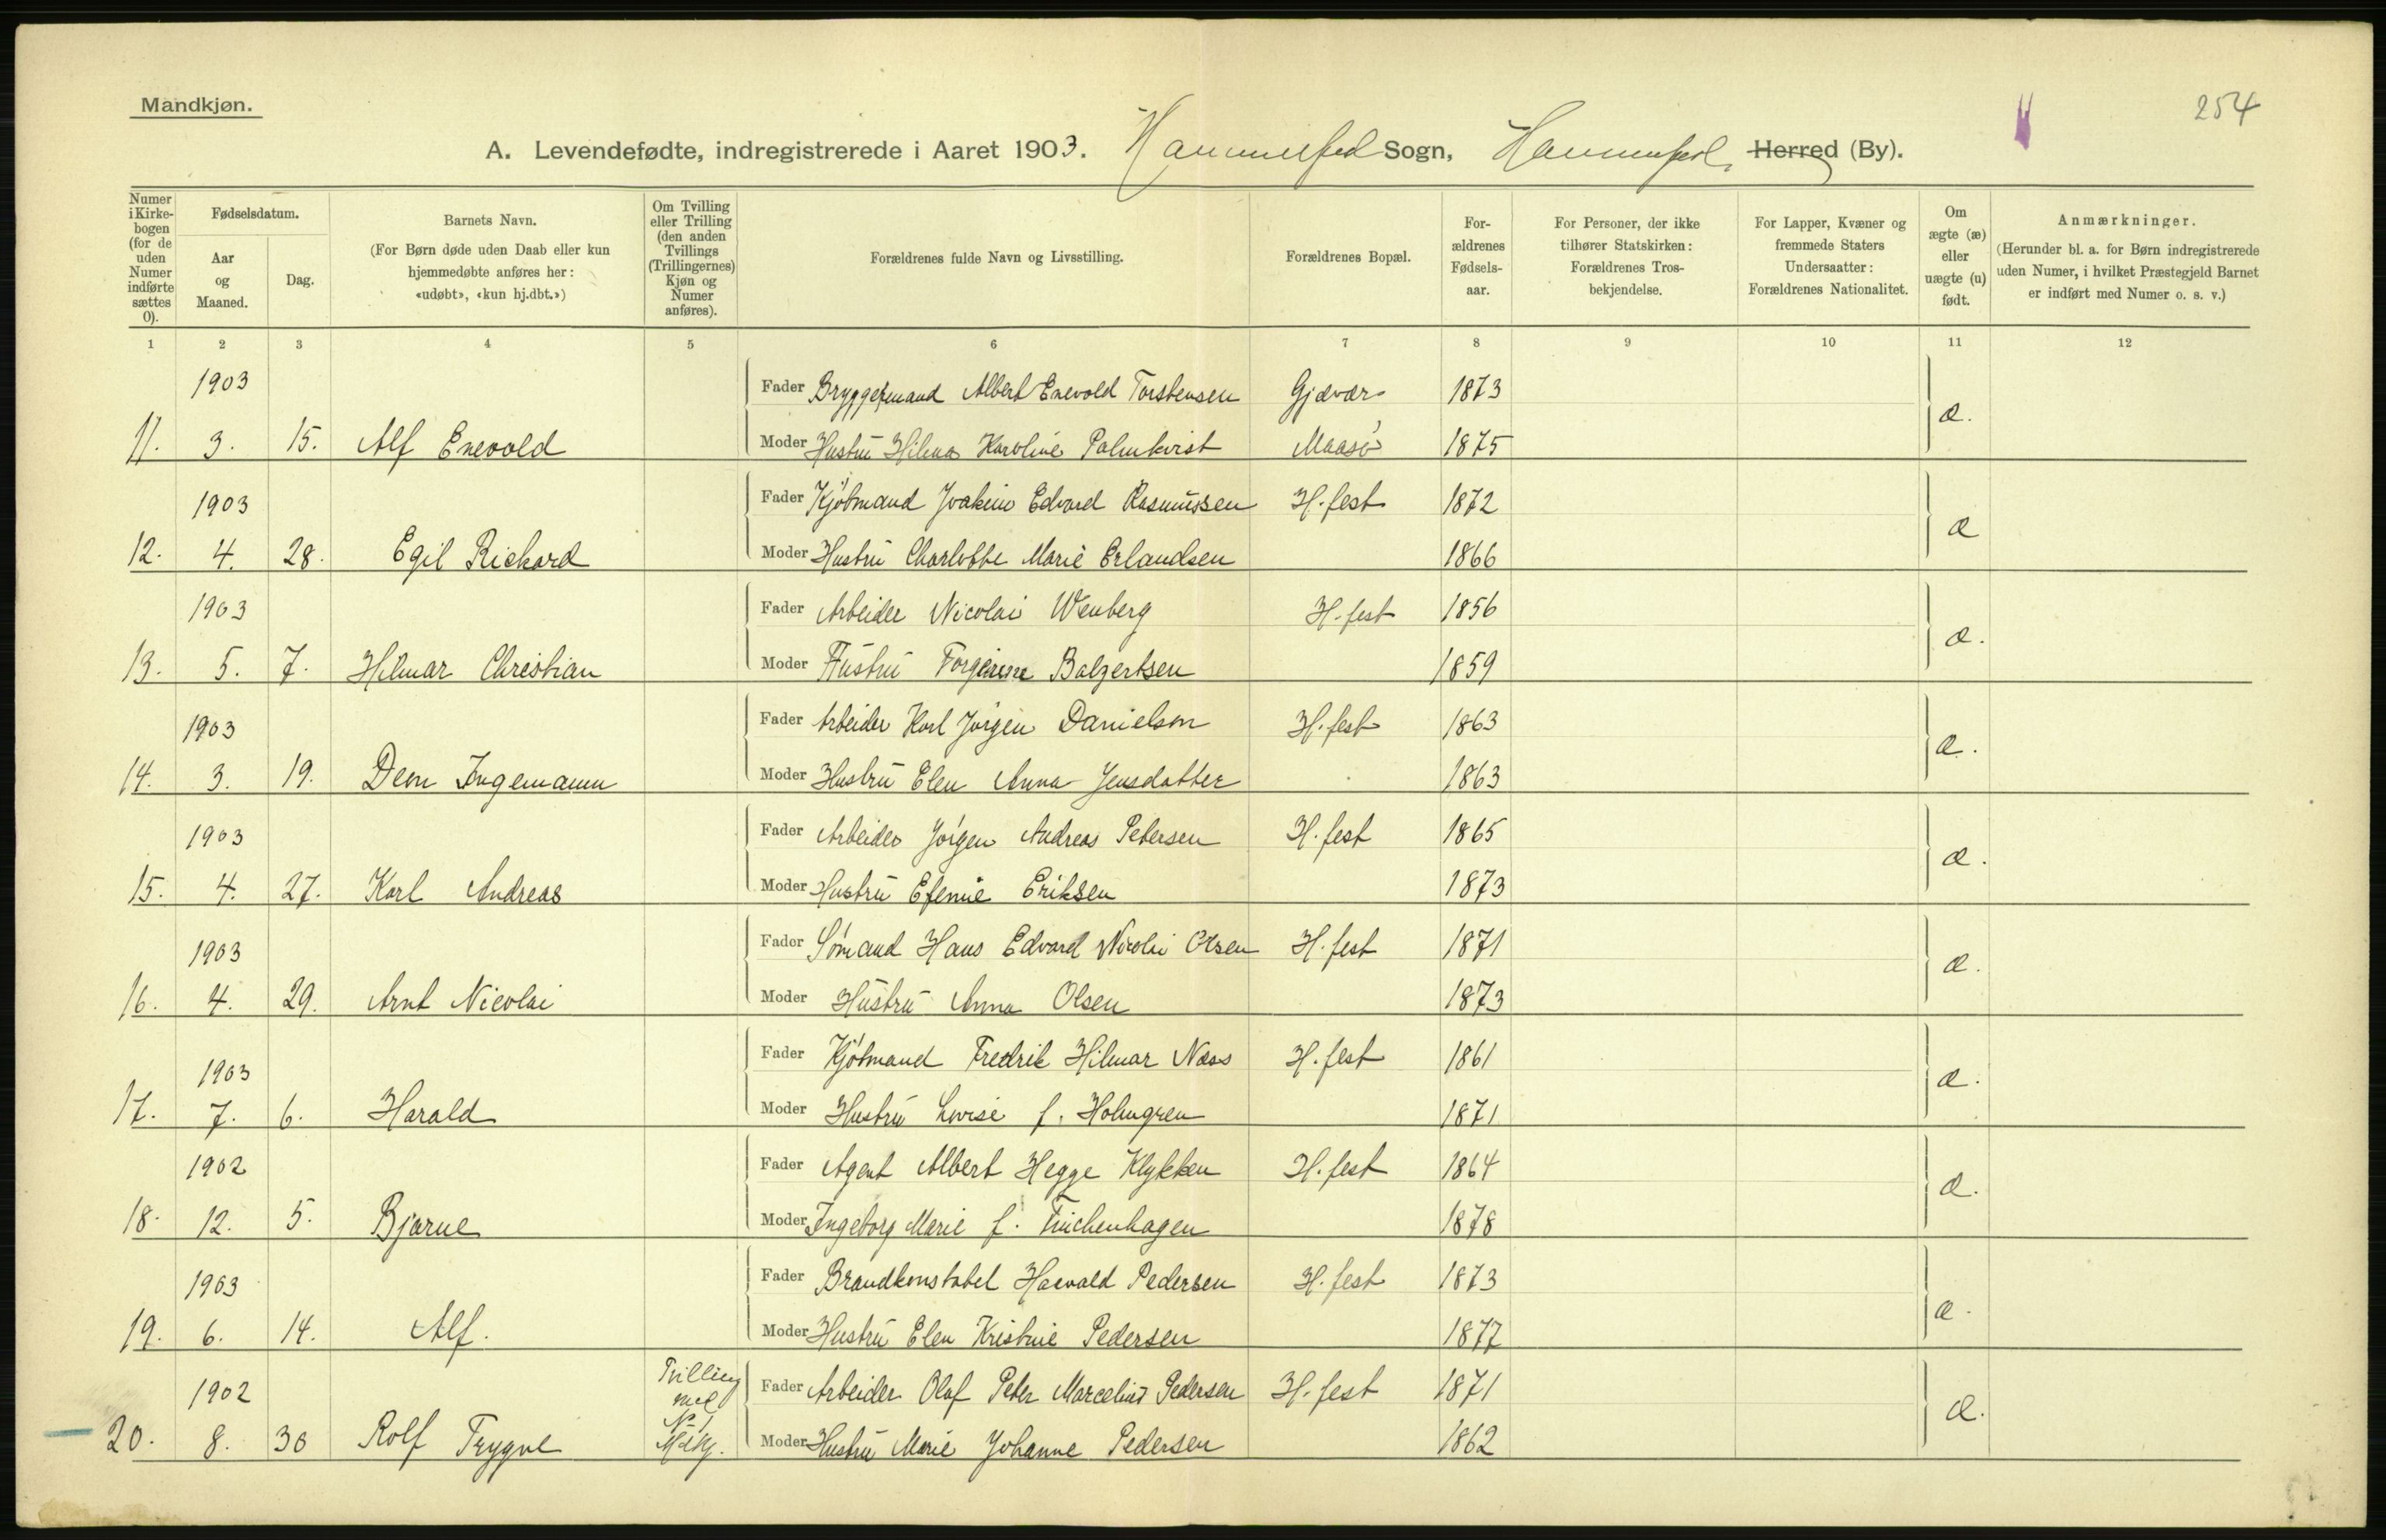 Mandkjøn.
254
A. Levendefødte, indregistrerede i Aaret 1903. Hammerfest Sogn, Hammerfest Herred (By).
Numer i Kirke-bogen (for de uden Numer indførte sættes 0).
Fødselsdatum.
Aar og Maaned.
Dag.
Barnets Navn.
(For Børn døde uden Daab eller kun hjemmedøbte anføres her: «udøbt», «kun hj.dbt.»)
Om Tvilling eller Trilling (den anden Tvillings (Trillingernes) Kjøn og Numer anføres).
Forældrenes fulde Navn og Livsstilling.
Forældrenes Bopæl.
For-ældrenes Fødsels-aar.
For Personer, der ikke tilhører Statskirken: Forældrenes Tros-bekjendelse.
For Lapper, Kvæner og fremmede Staters Undersaatter: Forældrenes Nationalitet.
Om ægte (æ) eller uægte (u) født.
Anmærkninger.
(Herunder bl. a. for Børn indregistrerede uden Numer, i hvilket Præstegjeld Barnet er indført med Numer o. s. v.)
1 2 3 4 5 6 7 8 9 10 11 12
1903 Fader Bryggemand Albert Enevold Torstensen Gjæsvær 1873 æ.
11. 3. 15. Alf Enevold Moder Hustru Hilma Karoline Palmkvist Maasö 1875
1903 Fader Kjöbmand Joakim Edvard Rasmussen H.fest 1872 æ
12. 4. 28. Egil Rickard Moder Hustru Charlotte Marie Erlandsen 1866
1903 Fader Arbeider Nicolai Wenberg H.fest 1856 æ.
13. 5. 7. Hilmar Christian Moder Hustru Balzertsen 1859
1903 Fader Arbeider Karl Jörgen Danielsen H.fest 1863 æ.
14. 3. 19. Ingemann Moder Hustru Elen Anna Jensdatter 1863
1903 Fader Arbeider Jörgen Andreas Petersen H.fest 1865 æ.
15. 4. 27. Karl Andreas Moder Hustru Efenie Eriksen 1873
1903 Fader Sömand Hans Edvard Nicolai Olsen H.fest 1871 æ.
16. 4. 29. Arnt Nicolai Moder Hustru Anna Olsen 1873
1903 Fader Kjöbmand Fredrik Hilmar Næss H.fest 1861 æ.
17. 7. 6. Harald Moder Hustru Lovise f. Holmgren 1871
1902 Fader Agent Albert Hegge Klykken H.fest 1864 æ.
18. 12. 5. Bjarne Moder Ingeborg Marie f. Finchenhagen 1878
1903 Fader Brandkonstabel Haavald Pedersen H.fest 1873 æ.
19. 6. 14. Alf. Moder Hustru Elen Kristine Pedersen 1877
1902 Tvilling med Fader Arbeider Olaf Peter Marcelius Pedersen H.fest 1871 æ.
20. 8. 30 Rolf Trygve No 1 Moder Hustru Marie Johanne Pedersen 1862